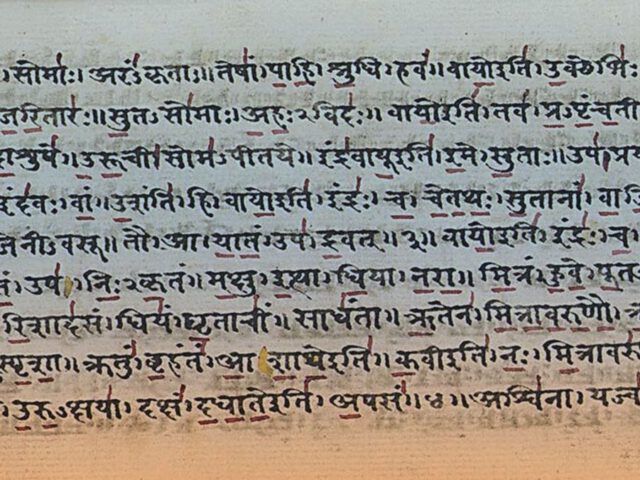 । सोमाः॑ । अरं॑ कृताः॥ तेषां॑ । पा॒हि॒ । श्रु॒धि । हवं॑॥ वायो॒इति॑ । उ॒क्थेभिः॑
ज॒रि॒तारः॑॥ सु॒तऽसो॑माः । अ॒हः॒ऽविदः॑॥ वायो॒इति॑ । तव॑ । प्र॒ऽपृं॒च॒ती
दा॒शुषे॑॥ उ॒रू॒ची । सोम॑ऽपीतये॥ इंद्र॑वायू॒इति॑ । इ॒मे । सु॒ताः॥ उप॑ । प्रय
इंद॑वः । वां॒ । उ॒शंति॑ । हि । वायो॒इति॑ । इंद्रः॑ । च॒ । चे॒त॒थः॒ । सु॒तानां॑ । वा॒जि
जिनीऽवसू॥ तौ । आ । या॒तं॒ । उप॑ । द्र॒वत्॥३॥ वायो॒इति॑ । इंद्रः॑ । च॒ ।
तं॒ । उप॑ । निः॒ऽकृ॒तं॥ म॒क्षु । इ॒त्था । धि॒या । न॒रा॒॥ मि॒त्रं । हु॒वे॒ । पू॒त
रि॒शाद॑सं । धियं॑ । घृ॒ताचीं॑॥ साधं॑ता॥ ऋ॒तेन॑ । मि॒त्रा॒व॒रु॒णौ॒ । ऋ
स्पृ॒शा॒॥ ऋतुं॑ । बृ॒हंतं॑ । आ । शा॒थे॒इति॑॥ क॒वीइति॑ । नः॒ । मि॒त्राव॑रु
। उ॒रु॒ऽक्षया॑ । दक्षं॑ । द॒धा॒ते॒इति॑ । अ॒पसं॑॥४॥ अश्वि॑ना । यज्व